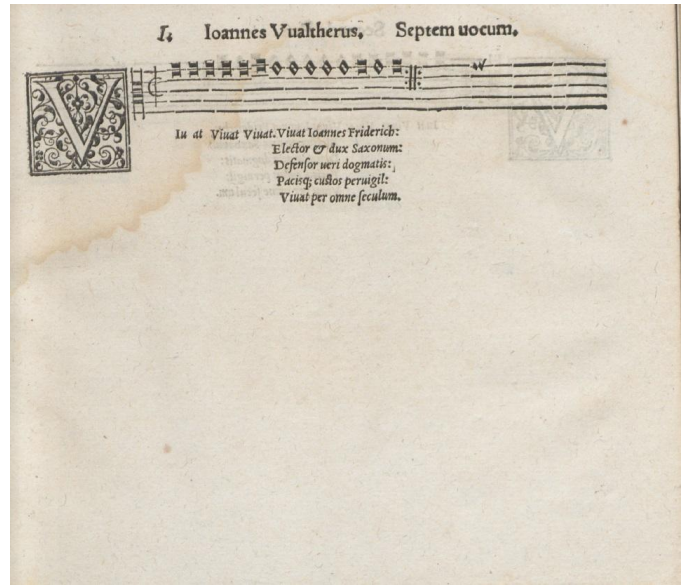 I. Ioannes Vualtherus. Septem uocum.
V
Iu at Viuat Viuat. Viuat Ioannes Friderich:
Elector & dux Saxonum:
Defenſor ueri dogmatis:
Pacisq; cuſtos peruigil:
Viuat per omne ſeculum.